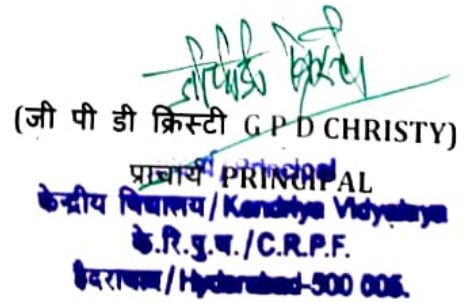 जी पी डी क्रिस्टी
(जी पी डी क्रिस्टी G P D CHRISTY)
प्राचार्य PRINCIPAL
प्राचार्य / Principal
केन्द्रीय विद्यालय / Kendriya Vidyalaya
के.रि.पु.ब. / C.R.P.F.
हैदराबाद / Hyderabad-500 005.